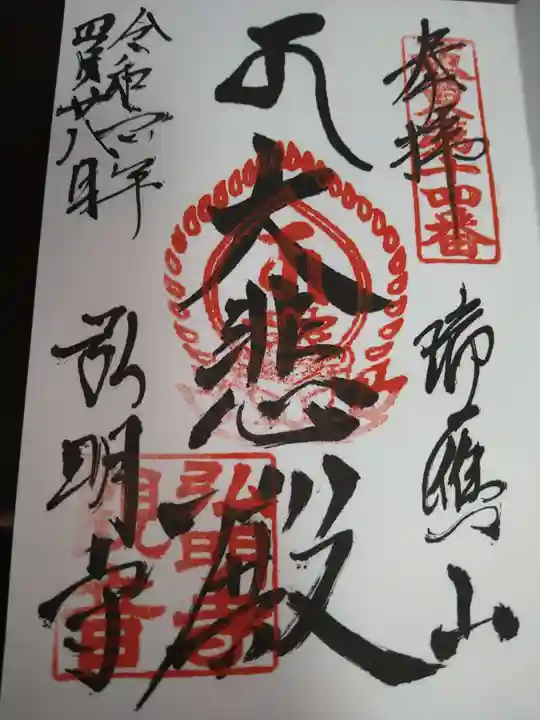 奉拝
坂東第十四番
瑞應山
大悲殿
弘明寺
観音
令和六年
四月廿八日
弘明寺